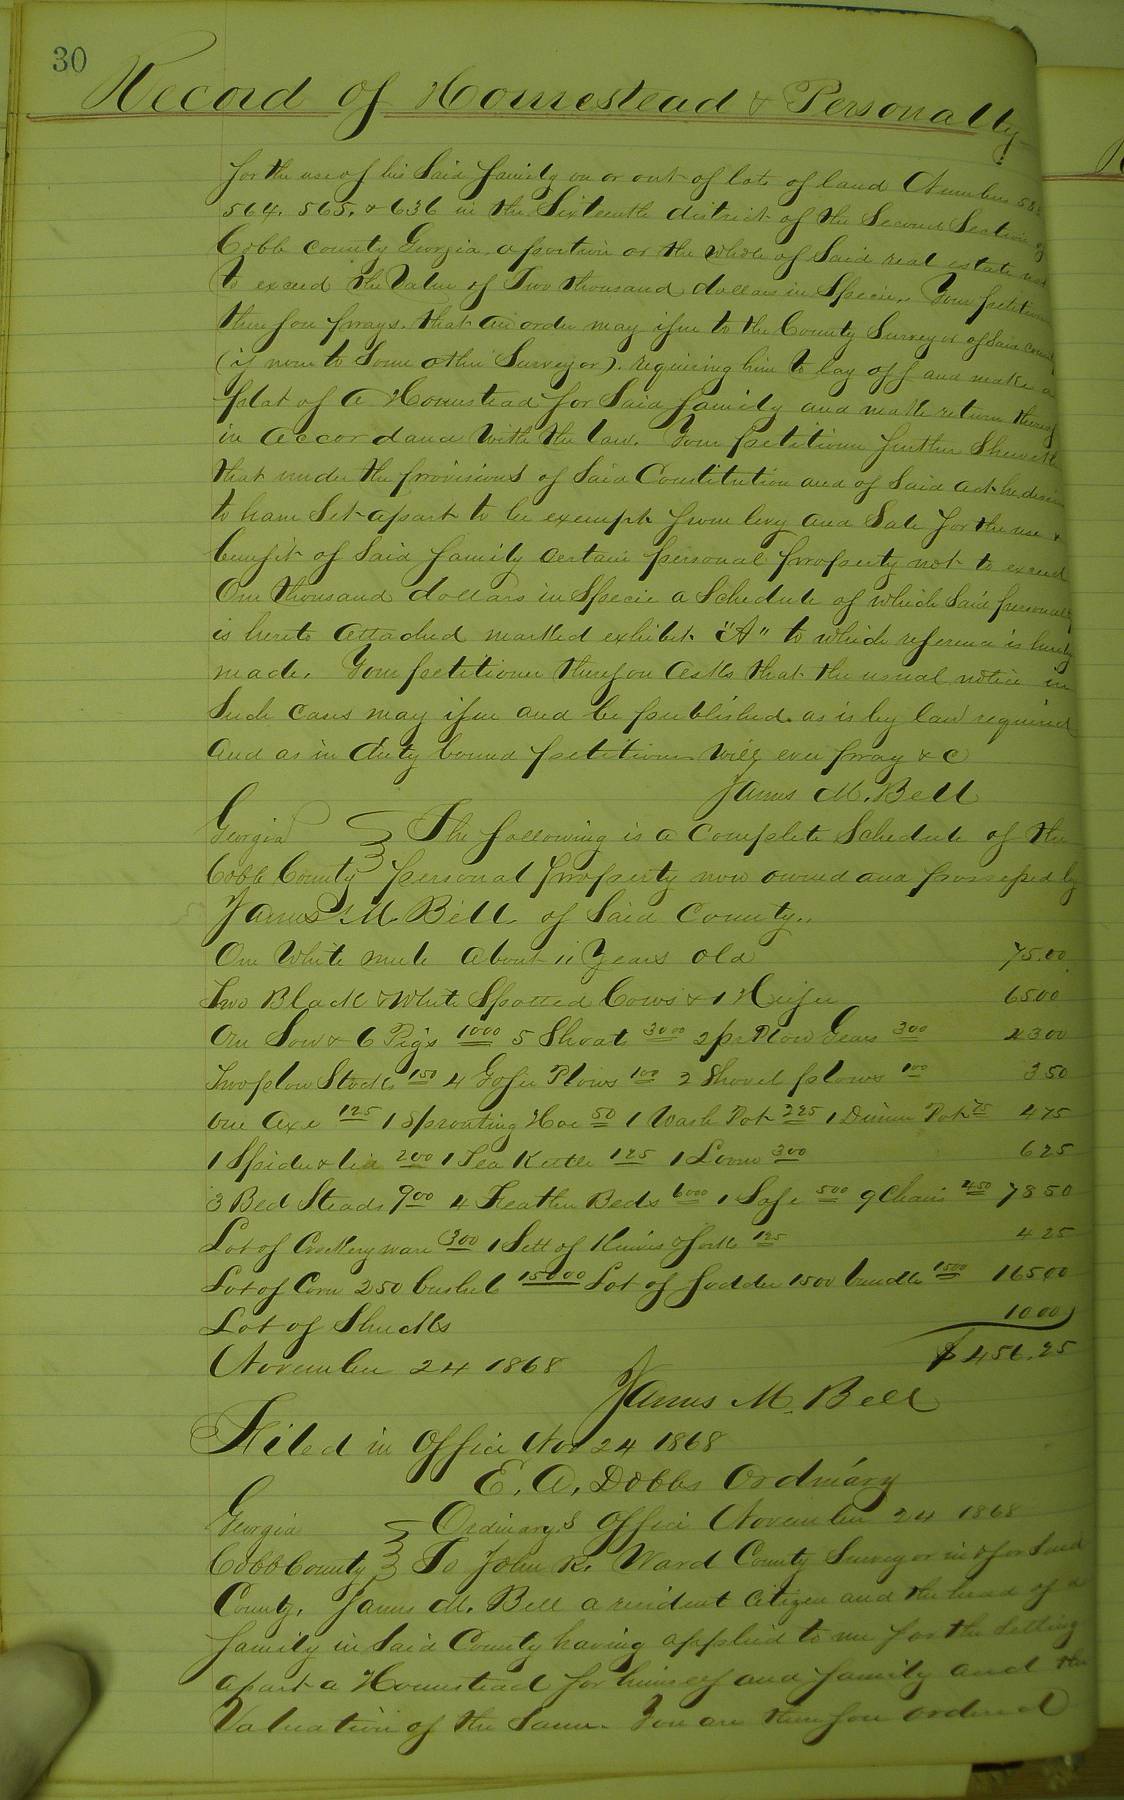 30
Record of Homestead & Personalty
for the use of his Said family on or out of lots of land Numbers
564. 565. & 636 in the Sixteenth district of the Second Section of
Cobb county Georgia, a portion or the whole of Said real estate not
to exceed the Value of Two thousand dollars in Specie. Your petitioner
therefore prays. that an order may issue to the County Surveyor of Said County
(if none to Some other Surveyor). requiring him to lay off and make a
plat of a Homestead for Said family and make return thereof
in accordance With the law. Your petitioner further Sheweth
that under the provisions of Said Constitution and of Said act he desires
to have Set apart to be exempt from levy and Sale for the use &
benefit of Said family certain personal property not to exceed
One thousand dollars in Specie a Schedule of which Said personalty
is hereto attached marked exhibit "A" to which reference is hereby
made. Your petitioner therefore asks that the usual notice in
Such cases may issue and be published. as is by law required
and as in duty bound petitioner Will ever pray & c
James M. Bell
Georgia } The following is a Complete Schedule of the
Cobb County } personal property now owned and possessed by
James M Bell of Said County.
One White mule about 11 Years old 75.00
Two Black & White Spotted Cows & 1 Heifer 6500
One Sow & 6 Pigs 1000 5 Shoats 3000 2 pr Plow Gears 300 4300
Two plow Stocks 150 4 Gofer Plows 100 2 Shovel plows 100 350
One Axe 125 1 Sprouting Hoe 50 1 Wash Pot 225 1 Dinner Pot 75 475
1 Spider & lid 200 1 Tea Kettle 125 1 Loom 300 625
3 Bed Steads 900 4 Feather Beds 6000 1 Safe 500 9 Chairs 450 7850
Lot of Crockery ware 300 1 Sett of Knives & forks 125 425
Lot of Corn 250 bushels 15000 Lot of fodder 1500 bundles 1500 16500
Lot of Shucks 1000
November 24 1868 $456.25
James M. Bell
Filed in Office Nov 24 1868
E. A. Dobbs Ordinary
Georgia } Ordinary,s Office November 24 1868
Cobb County } To John R. Ward County Surveyor in & for Said
County. James M. Bell a resident Citizen and the head of a
family in Said County having applied to me for the Setting
apart a Homestead for himself and family and the
Valuation of the Same. You are therefore ordered